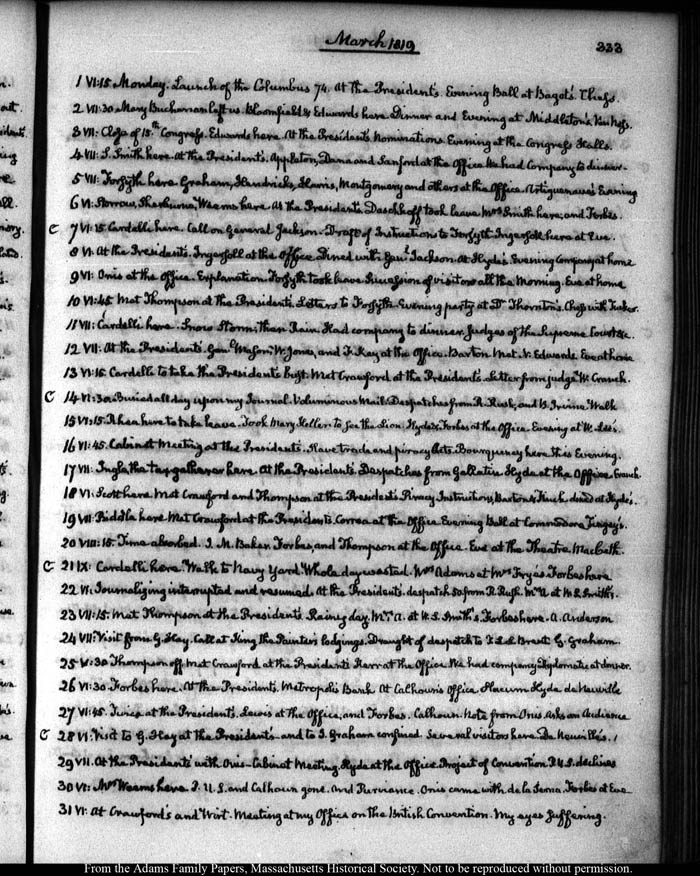 March 1819
333
1 VI:15 Monday. Launch of the Columbus 74. At the President's. Evening Ball at Bagot's. Chess.
2 VII:30 Mary Buchanan left us. Bloomfield & Edwards here Dinner and Evening at Middleton's.
3 VII: Close of 15th Congress. Edwards here. At the President's Nominations Evening at the Congress Halls.
4 VII: S. Smith here. At the President's. Appleton, Dana and Sanford at the Office. We had Company to dinner.
5 VII: Forsyth here Graham, Hendricks, Harris, Montgomery and others at the Office. Evening
6 VI: Storrow, Sherburne, Weems here. At the President's. Daschkoff took leave Mrs Smith here, and Forbes.
C 7 VI:15 Cardelli here. Call on General Jackson. Draft of Instructions to Forsyth Ingersoll here at Eve.
8 VI. At the President's. Ingersoll at the Office. Dined with Genl Jackson. At Hyde's. Evening Company at home
9 VI: Onis at the Office. Explanation. Forsyth took leave. Succession of visitors all the Morning. Eve at home
10 VI:45 Met Thompson at the President's. Letters to Forsyth. Evening party at Dr Thornton's. Chess with
11 VII: Cardelli here. Snow Storm, then Rain. Had company to dinner. Judges of the Supreme Court &c.
12 VII: At the President's. Genl Mason, W. Jones, and F. Key at the Office. Barton Met. N. Edwards. Eve at home
13 VI:15 Cardelli to take the President's bust. Met Crawford at the President's. Letter from judge W. Cranch.
C 14 VI:30 Busied all day upon my Journal. Voluminous Mail. Despatches from R. Rush, and B. Irvine Walk
15 VI:15 Rhea here to take leave. Took Mary Hellen to see the Lion. Hyde & Forbes at the Office. Evening at W. Lee's.
16 VI:45. Cabinet Meeting at the President's. Slave trade and piracy Acts. here this Evening.
17 VII: Ingle the tax gatherer here. At the President's. Despatches from Gallatin Hyde at the Office.
18 VI: Scott here. Met Crawford and Thompson at the President's. Piracy Instructions, Barton & dined at Hyde's.
19 VII: Biddle here Met Crawford at the President's. Correa at the Office Evening Ball at Commodore Tingey's.
20 VIII:15. Time absorbed. J. M. Baker, Forbes, and Thompson at the Office. Eve at the Theatre. Macbeth.
C 21 IX: Cardelli here. Walk to Navy Yard. Whole day wasted. Mrs Adams at Mrs Frye's Forbes here
22 VI. Journalizing interrupted and resumed. At the President's. despatch 50. from R. Rush. Mrs A. at W. S. Smith's.
23 VII:15. Met Thompson at the President's Rainy day. Mrs A. at W. S. Smith's. Forbes here. A. Anderson
24 VII: Visit from G. Hay. Call at King the Painter's lodgings. Draught of despatch to Brent G. Graham.
25 V:30 Thompson off. Met Crawford at the President's at the Office. We had company Diplomatic at dinner.
26 VI:30 Forbes here. At the President's. Metropolis Bank. At Calhoun's Office. Slacum Hyde de Neuville
27 VI:45. Twice at the President's. Lewis at the Office, and Forbes. Calhoun. Note from Onis Asks an Audience
C 28 VI: Visit to G. Hay at the President's and to J. Graham confined. Several visitors here. De Neuville's.
29 VII. At the President's with Onis. Cabinet Meeting. Hyde at the Office. Project of Convention P. U. S. declines
30 VI: Mrs Weems here. P. U. S. and Calhoun gone. And Purviance. Onis came with de la Serna. Forbes at Eve
31 VI: At Crawford's and Wirt. Meeting at my Office on the British Convention. My eyes suffering.
From the Adams Family Papers, Massachusetts Historical Society. Not to be reproduced without permission.